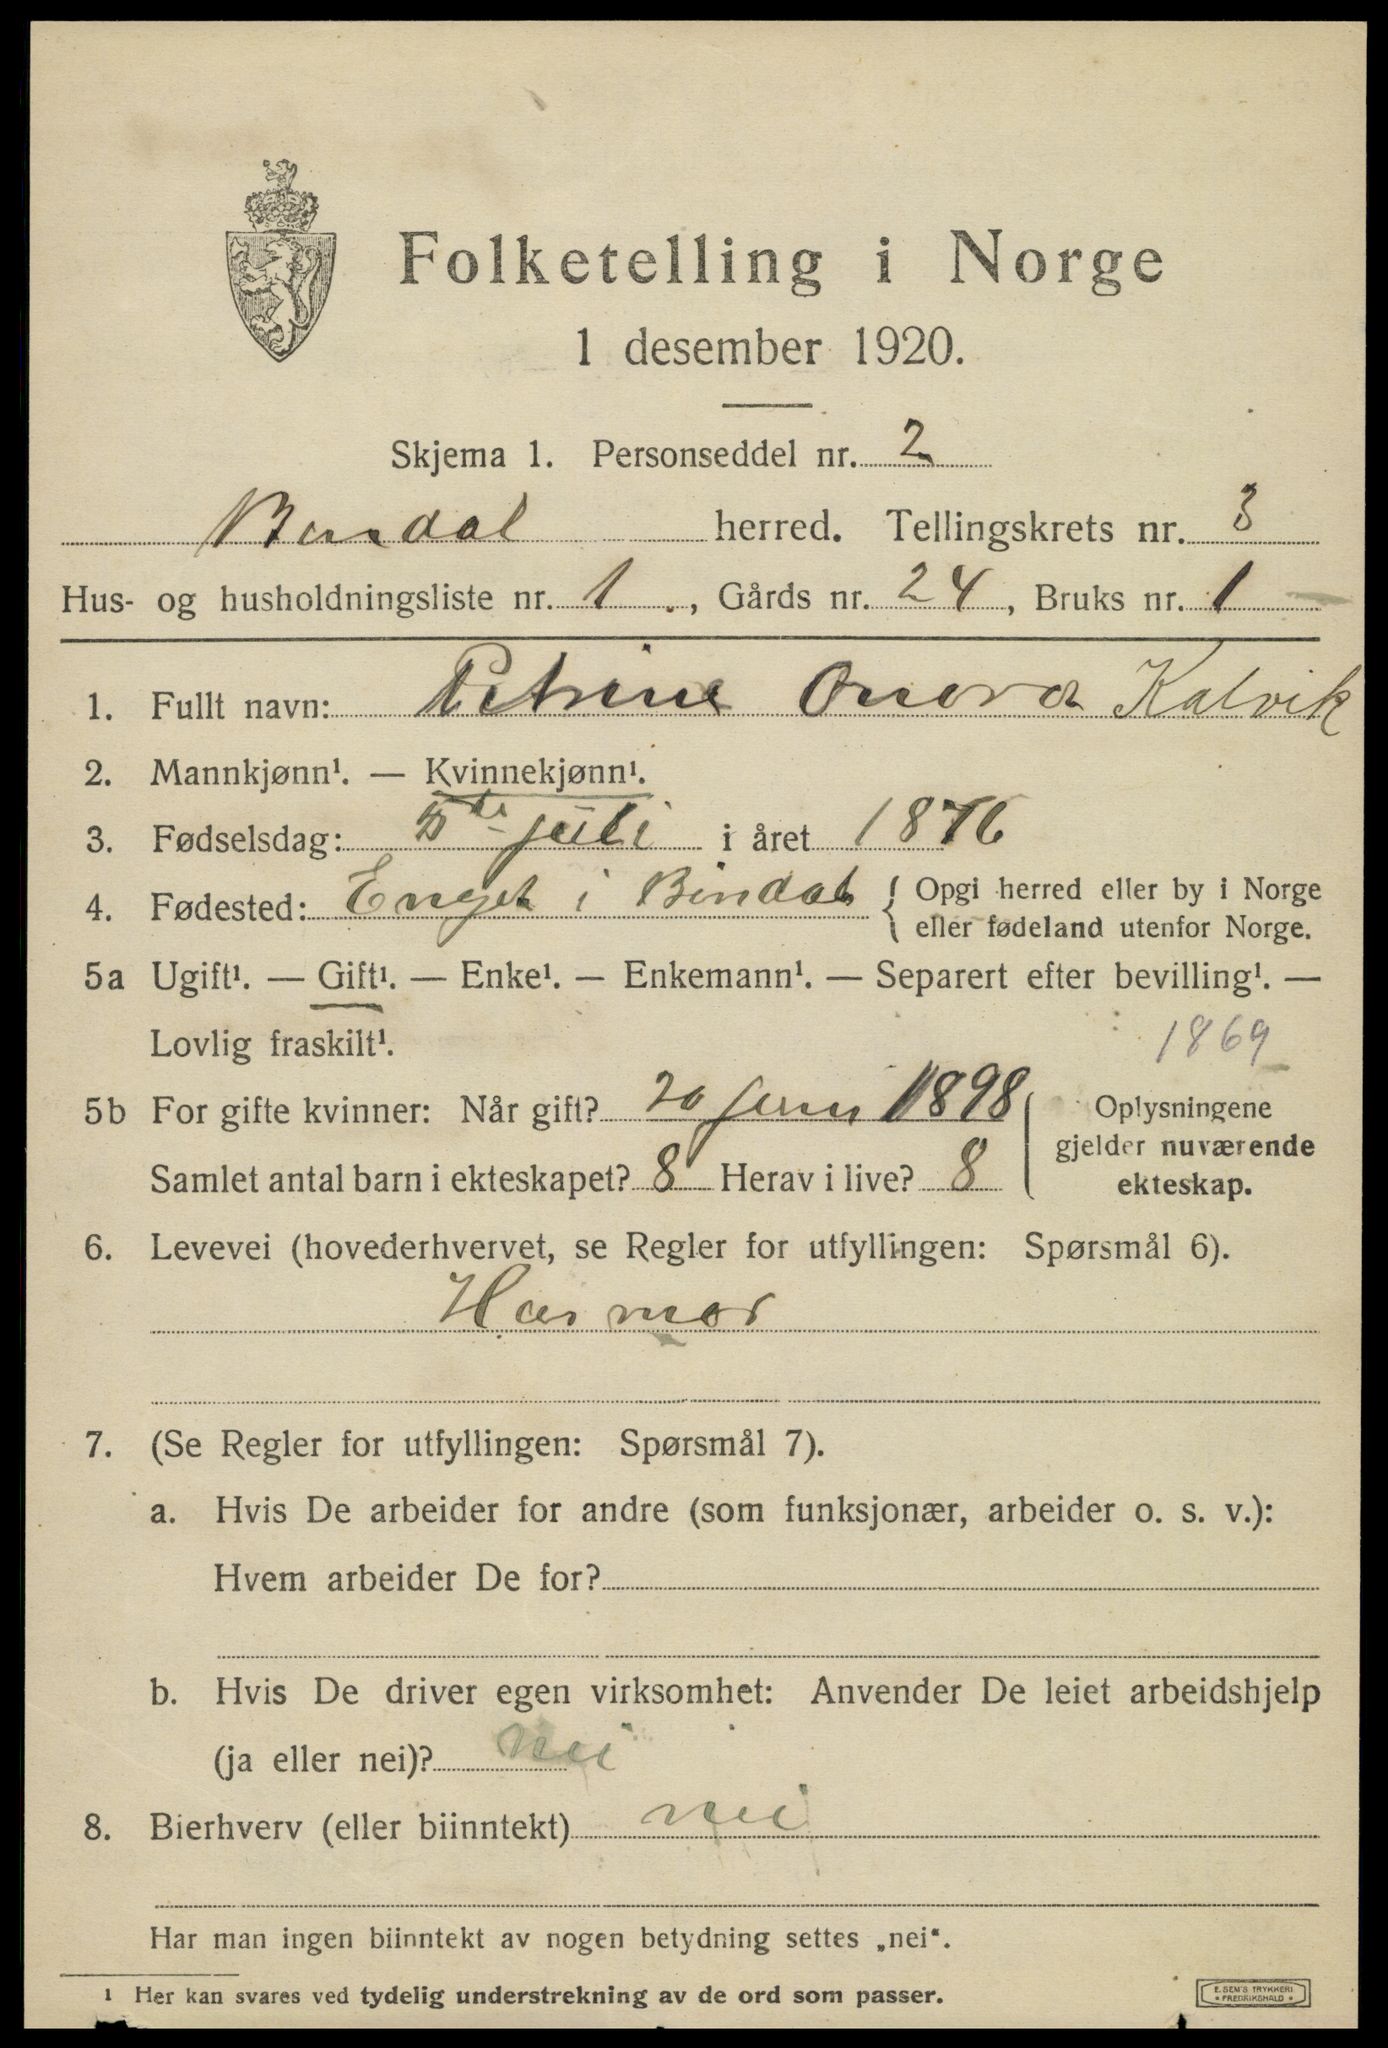 Folketelling i Norge
1 desember 1920.
Skjema 1. Personseddel nr. 2
Bindal herred. Tellingskrets nr. 3
Hus- og husholdningsliste nr. 1, Gårds nr. 24, Bruks nr. 1
1. Fullt navn: Petrine Onora Kalvik
2. Mannkjønn¹. — Kvinnekjønn¹.
3. Fødselsdag: 5te juli i året 1876
4. Fødested: Enget i Bindal { Opgi herred eller by i Norge
eller fødeland utenfor Norge.
5a Ugift¹. — Gift¹. — Enke¹. — Enkemann¹. — Separert efter bevilling¹. —
Lovlig fraskilt¹.
1869
5b For gifte kvinner: Når gift? 20 juni 1898
Samlet antal barn i ekteskapet? 8 Herav i live? 8
Oplysningene
gjelder nuværende
ekteskap.
6. Levevei (hovederhvervet, se Regler for utfyllingen: Spørsmål 6).
Husmor
7. (Se Regler for utfyllingen: Spørsmål 7).
a. Hvis De arbeider for andre (som funksjonær, arbeider o. s. v.):
Hvem arbeider De for?
b. Hvis De driver egen virksomhet: Anvender De leiet arbeidshjelp
(ja eller nei)? nei
8. Bierhverv (eller biinntekt) nei
Har man ingen biinntekt av nogen betydning settes „nei“.
1 Her kan svares ved tydelig understrekning av de ord som passer.
E. SEM'S TRYKKERI
• FREDRIKSHALD •